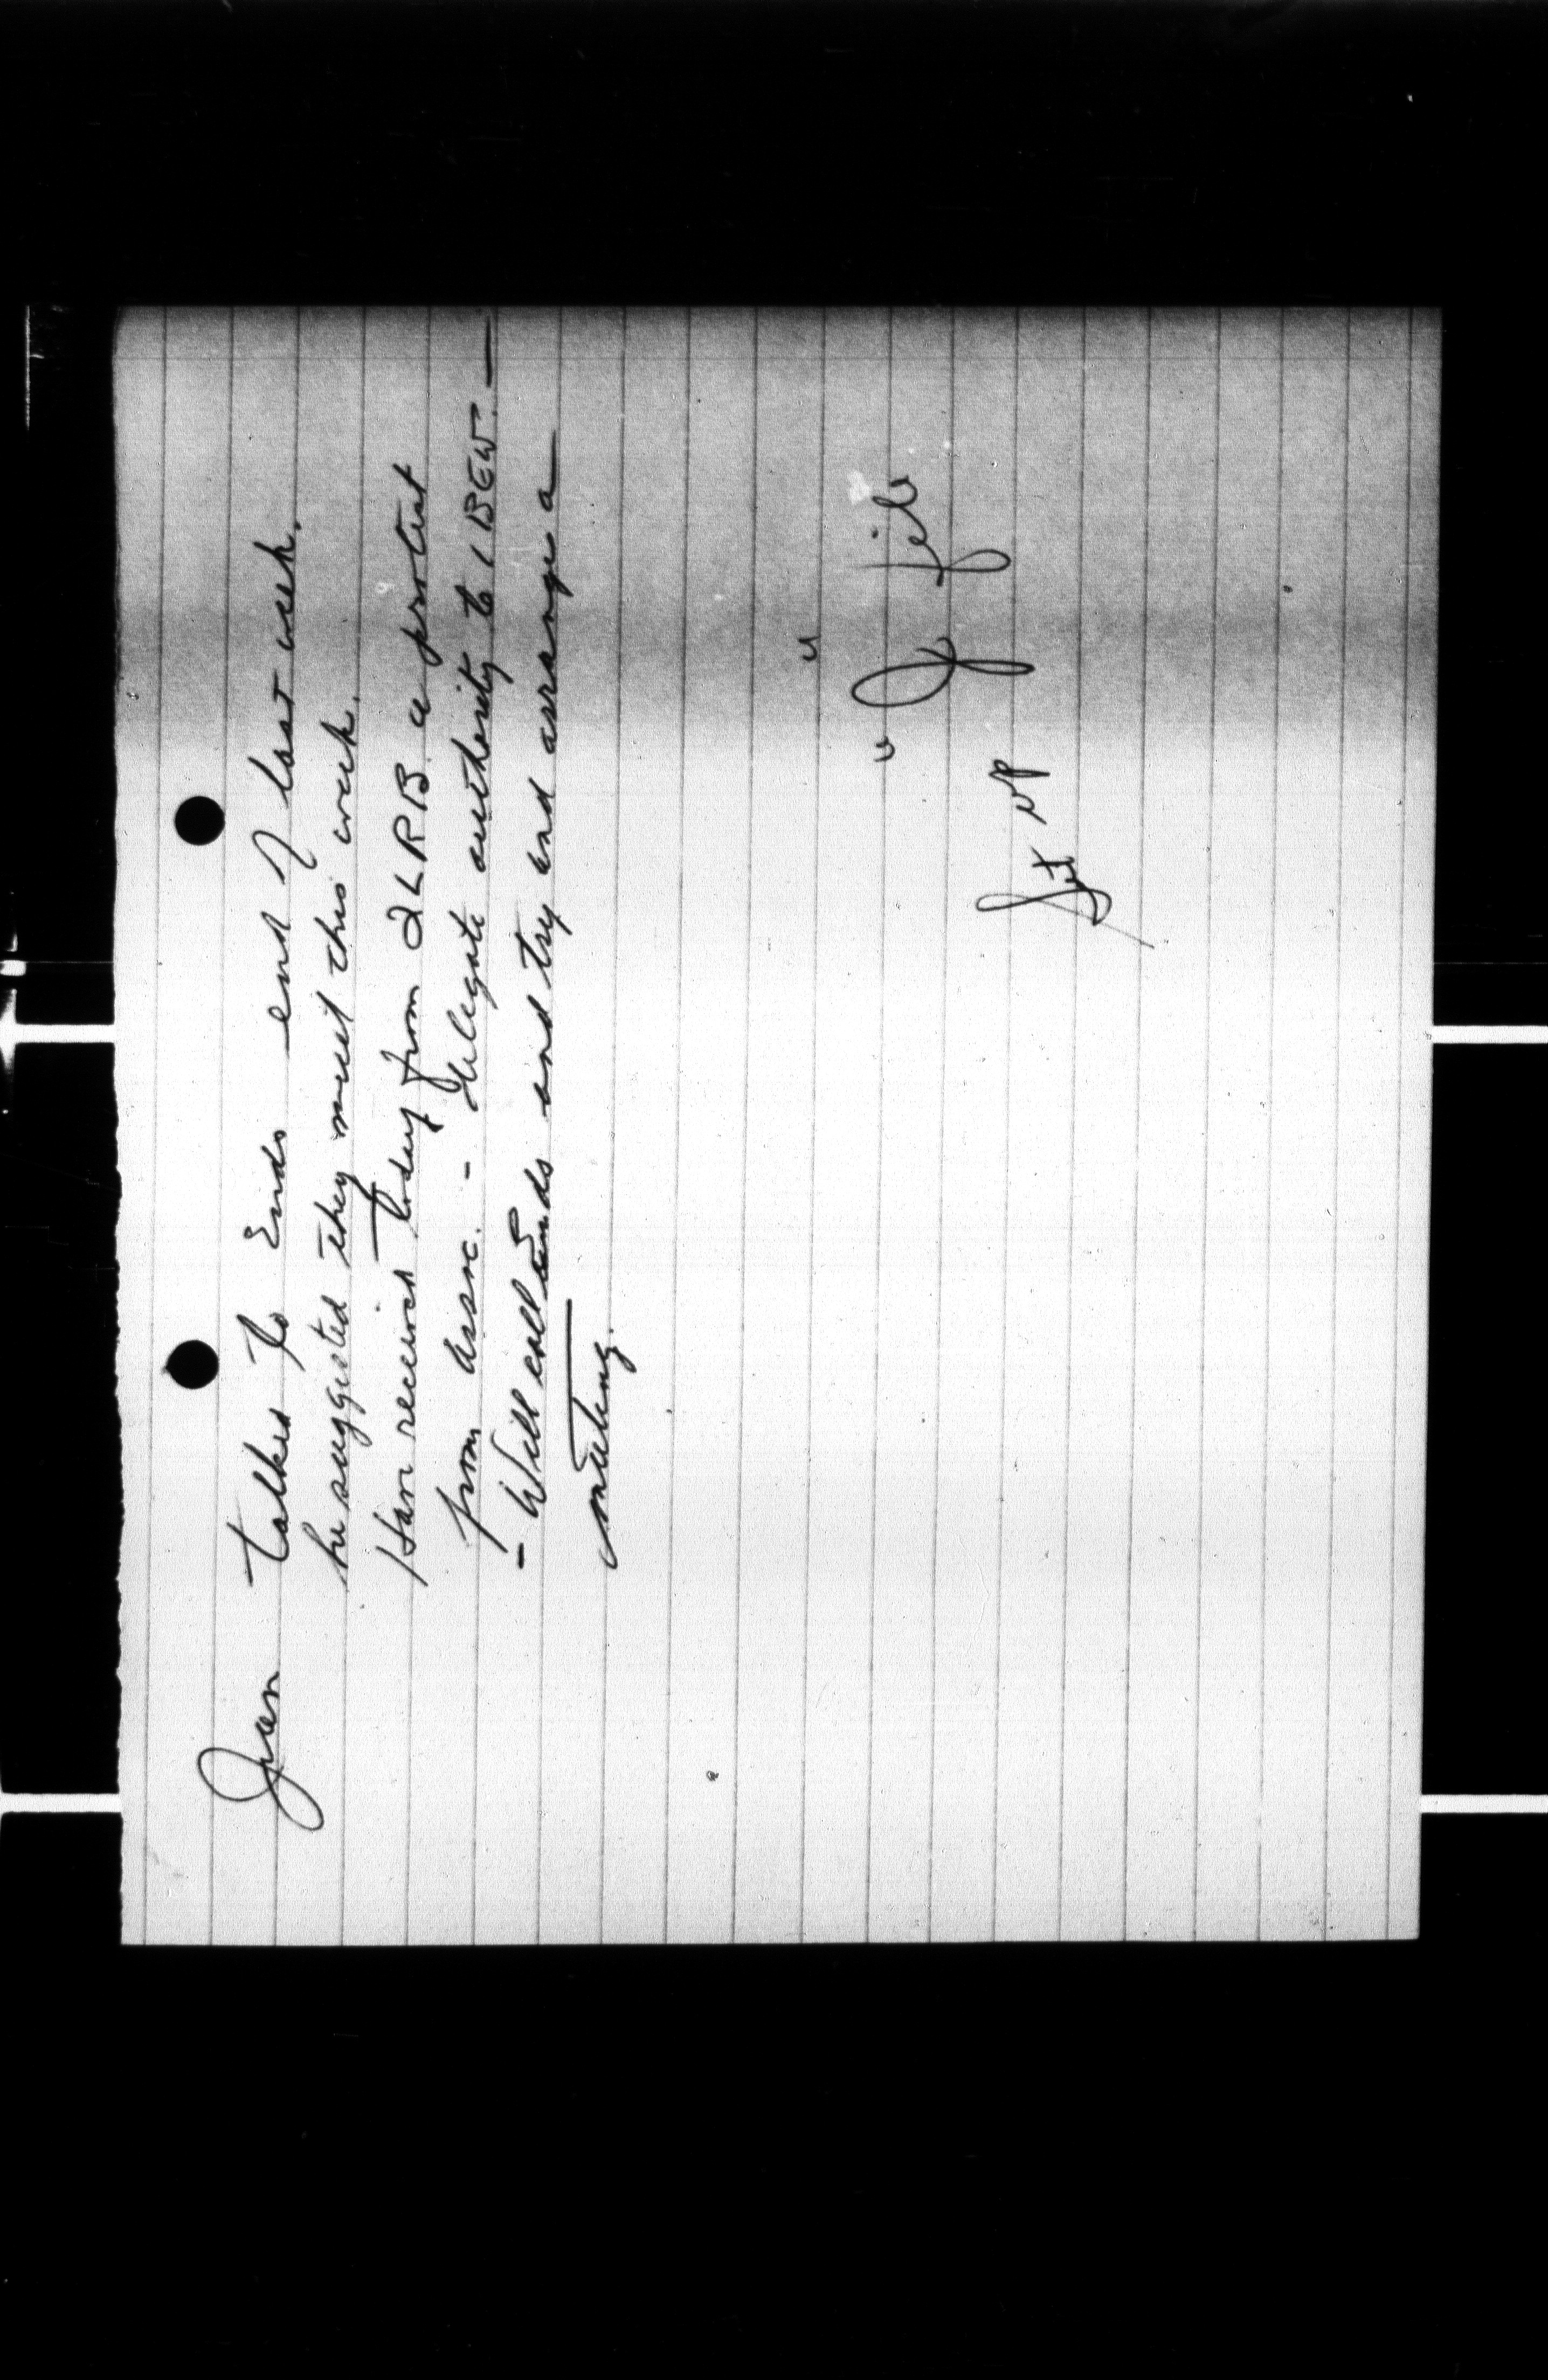 Jean talked to Ends end of last week.
he suggested they meet this week.
Have received today from QLRB a protest
from assoc. - delegate authority to IBEW. —
- Will call Ends and try and arrange a
meeting.
" J " file
Set up